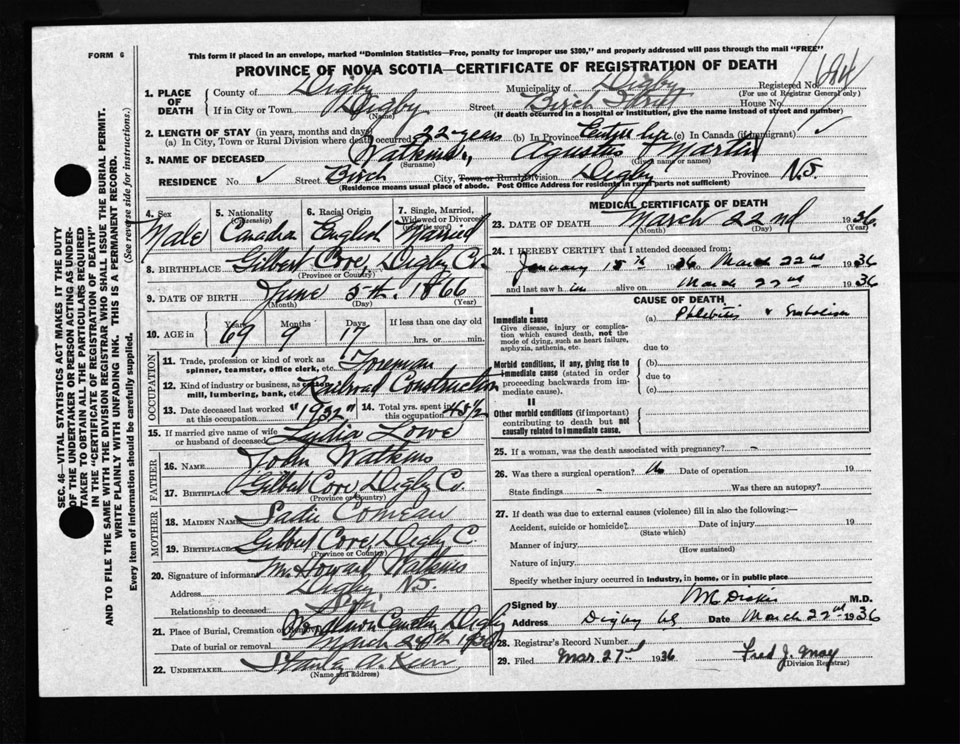 FORM 6
This form if placed in an envelope, marked "Dominion Statistics—Free, penalty for improper use $300," and properly addressed will pass through the mail "FREE"
PROVINCE OF NOVA SCOTIA—CERTIFICATE OF REGISTRATION OF DEATH
1. PLACE OF DEATH
County of Digby Municipality of Digby Registered No.
(For use of Registrar General only)
If in City or Town Digby Street Birch Street House No.
(Name) (If death occurred in a hospital or institution, give the name instead of street and number)
2. LENGTH OF STAY (in years, months and days)
(a) In City, Town or Rural Division where death occurred 22 years (b) In Province Entire life (c) In Canada (if immigrant)
3. NAME OF DECEASED Watkins, Agustus Martin
(Surname) (Given name or names)
RESIDENCE No. ✓ Street Birch City, Town or Rural Division Digby Province N.S.
(Residence means usual place of abode. Post Office Address for residents in rural parts not sufficient)
4. Sex 5. Nationality (Citizenship) 6. Racial Origin 7. Single, Married, Widowed or Divorced
Male Canadian English Married
8. BIRTHPLACE Gilbert Cove, Digby Co.
(Province or Country)
9. DATE OF BIRTH June 5th 1866
(Month) (Day) (Year)
10. AGE in Years Months Days If less than one day old
69 9 17 hrs. or min.
OCCUPATION
11. Trade, profession or kind of work as spinner, teamster, office clerk, etc. Foreman
12. Kind of industry or business, as mill, lumbering, bank, etc. Railroad Construction
13. Date deceased last worked at this occupation "1932" 14. Total yrs. spent in this occupation
15. If married give name of wife or husband of deceased Lydia Lowe
FATHER
16. NAME John Watkins
17. BIRTHPLACE Gilbert Cove, Digby Co.
(Province or Country)
MOTHER
18. MAIDEN NAME Sadie Comeau
19. BIRTHPLACE Gilbert Cove, Digby C.
(Province or Country)
20. Signature of informant Mr Howard Watkins
Address Digby N.S.
Relationship to deceased
21. Place of Burial, Cremation or Removal Digby
Date of burial or removal March 24th 1936
22. UNDERTAKER Stanley A.
(Name and address)
MEDICAL CERTIFICATE OF DEATH
23. DATE OF DEATH March 22nd 1936.
(Month) (Day) (Year)
24. I HEREBY CERTIFY that I attended deceased from:
January 15th 1936 to March 22nd 1936
and last saw him alive on March 22nd 1936
CAUSE OF DEATH
I
Immediate cause (a) Phlebitis & Embolism
Give disease, injury or complication which caused death, not the mode of dying, such as heart failure, asphyxia, asthenia, etc.
due to
Morbid conditions, if any, giving rise to immediate cause (stated in order proceeding backwards from immediate cause).
(b)
due to
(c)
II
Other morbid conditions (if important) contributing to death but not causally related to immediate cause.
25. If a woman, was the death associated with pregnancy? -
26. Was there a surgical operation? No Date of operation 19
State findings - Was there an autopsy?
27. If death was due to external causes (violence) fill in also the following:—
Accident, suicide or homicide? Date of injury 19
(State which)
Manner of injury
(How sustained)
Nature of injury
Specify whether injury occurred in industry, in home, or in public place
Signed by M.D.
Address Digby NS Date March 22nd 1936
28. Registrar's Record Number
29. Filed Mar. 27th 1936 Fred J. May
(Division Registrar)
SEC. 46—VITAL STATISTICS ACT MAKES IT THE DUTY
OF THE UNDERTAKER OR PERSON ACTING AS UNDER-
TAKER TO OBTAIN ALL THE PARTICULARS REQUIRED
IN THE "CERTIFICATE OF REGISTRATION OF DEATH"
AND TO FILE THE SAME WITH THE DIVISION REGISTRAR WHO SHALL ISSUE THE BURIAL PERMIT.
WRITE PLAINLY WITH UNFADING INK. THIS IS A PERMANENT RECORD.
Every item of information should be carefully supplied. (See reverse side for instructions.)